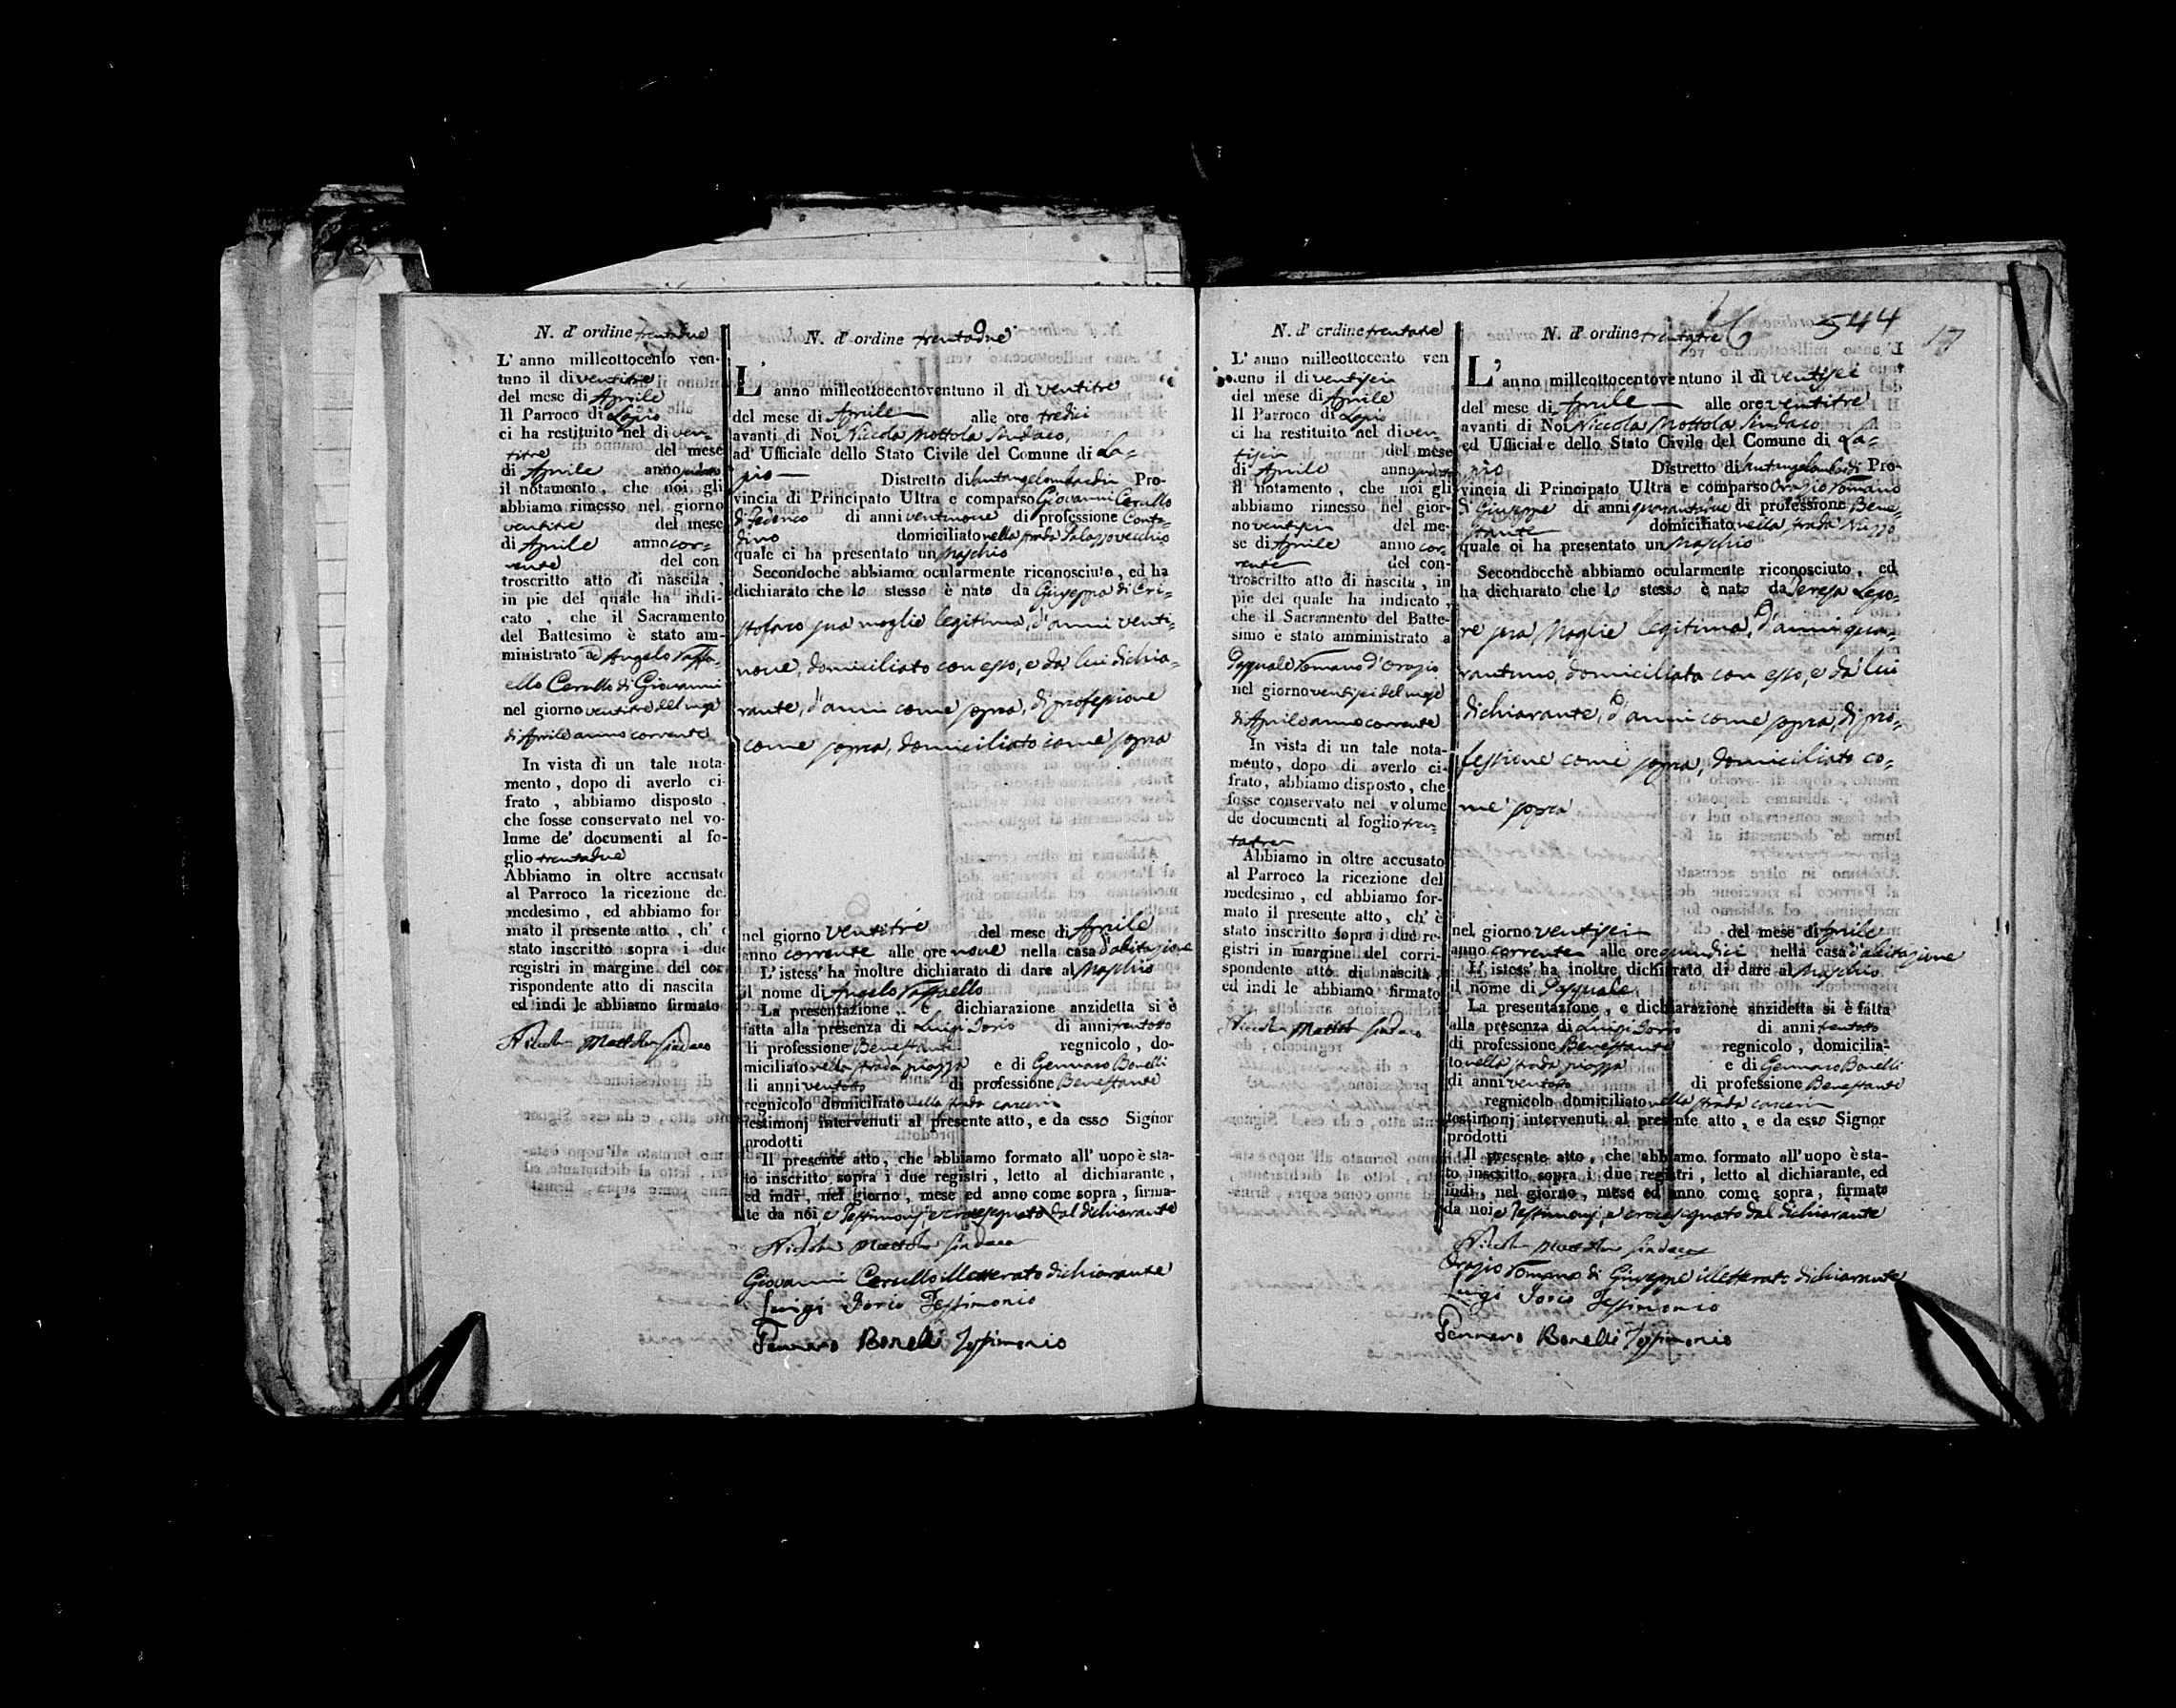 N. d' ordine trentadue
L' anno milleottocento ven-
tuno il di ventitre
del mese di Aprile
Il Parroco di Lapio
ci ha restituito nel di ven-
titre del mese
di Aprile anno
il notamento, che noi gli
abbiamo rimesso nel giorno
ventitre del mese
di Aprile anno cor-
rente del con
troscritto atto di nascita,
in pie del quale ha indi-
cato, che il Sacramento
del Battesimo è stato am-
ministrato a Angelo Raffa-
ello Cerullo di Giovanni
nel giorno ventitre del mese
di Aprile anno corrente
In vista di un tale nota-
mento, dopo di averlo ci-
frato, abbiamo disposto,
che fosse conservato nel vo-
lume de' documenti al fo-
glio trentadue
Abbiamo in oltre accusato
al Parroco la ricezione de
medesimo, ed abbiamo for
mato il presente atto, ch' è
stato inscritto sopra i due
registri in margine del cor
rispondente atto di nascita
ed indi le abbiamo firmato
Nicola Mottola Sindaco
N. d' ordine trentadue
L' anno milleottocentoventuno il dì ventitre
del mese di Aprile alle ore tredici
avanti di Noi Nicola Mottola Sindaco,
ad' Ufficiale dello Stato Civile del Comune di La-
pio Distretto di Santangelombardi Pro-
vincia di Principato Ultra e comparso Giovanni Cerullo
di Federico di anni ventinove di professione Conta-
dino domiciliato nella strada Palazzovecchio
quale ci ha presentato un Maschio
Secondochè abbiamo ocularmente riconosciuto, ed ha
dichiarato che lo stesso è nato da Giuseppa di Cri-
stofaro sua moglie legittima, d'anni venti-
nove, domiciliato con esso, e da lui dichia-
rante, d'anni come sopra, di professione
come sopra, domiciliato come sopra
nel giorno ventitre del mese di Aprile
anno corrente alle ore nove nella casa d'abitazione
L' istess' ha inoltre dichiarato di dare al Maschio
il nome di Angelo Raffaello
La presentazione, e dichiarazione anzidetta si è
fatta alla presenza di Luigi Iorio di anni trentotto
li professione Benestante regnicolo, do-
miciliato nella strada piazza e di Gennaro Bonelli
li anni ventotto di professione Benestante
regnicolo domiciliato nella strada carceri
testimonj intervenuti al presente atto, e da esso Signor
prodotti
Il presente atto, che abbiamo formato all' uopo è sta-
to inscritto sopra i due registri, letto al dichiarante,
ed indi, nel giorno, mese ed anno come sopra, firma-
te da noi, e Testimonj, e crocesegnato dal dichiarante
Nicola Mottola Sindaco
Giovanni Cerullo illetterato dichiarante
Luigi Iorio Testimonio
Gennaro Bonelli Testimonio
N. d' ordine trentatre
L' anno milleottocento ven
tuno il di ventisei
del mese di Aprile
Il Parroco di Lapio
ci ha restituito nel di ven-
tisei del mese
di Aprile anno
il notamento, che noi gli
abbiamo rimesso nel gior-
no ventisei del me-
se di Aprile anno cor-
rente del con-
troscritto atto di nascita, in
pie del quale ha indicato,
che il Sacramento del Batte-
simo è stato amministrato a
Pasquale Romano d'Orazio
nel giorno ventisei del mese
di Aprile anno corrente
In vista di un tale nota-
mento, dopo di averlo ci-
frato, abbiamo disposto, che
fosse conservato nel volume
de documenti al foglio tren-
tatre
Abbiamo in oltre accusato
al Parroco la ricezione del
medesimo, ed abbiamo for-
mato il presente atto, ch' è
stato inscritto sopra i due re-
gistri in margine del corri-
spondente atto di nascita
ed indi le abbiamo firmato
Nicola Mottola Sindaco
544
17
N. d' ordine trentatre
L' anno milleottocentoventuno il dì ventisei
del mese di Aprile alle ore ventitre
avanti di Noi Nicola Mottola Sindaco
ed Ufficiale dello Stato Civile del Comune di La-
pio Distretto di Santangelombardi Pro-
vincia di Principato Ultra e comparso Orazio Romano
di Giuseppe di anni quarantadue di professione Bene-
stante domiciliato nella strada
quale ci ha presentato un Maschio
Secondocchè abbiamo ocularmente riconosciuto, ed
ha dichiarato che lo stesso è nato da Teresa Lepo-
re sua Moglie legittima, d'anni qua-
rantuno, domiciliata con esso, e da lui
dichiarante, d'anni come sopra, di pro-
fessione come sopra, domiciliato co-
me sopra
nel giorno ventisei del mese di Aprile
anno corrente alle ore quindici nella casa d'abitazione
L' istess' ha inoltre dichiarato di dare al Maschio
il nome di Pasquale
La presentazione, e dichiarazione anzidetta si è fatta
alla presenza di Luigi Iorio di anni trentotto
di professione Benestante regnicolo, domicilia-
to nella strada piazza e di Gennaro Bonelli
di anni ventotto di professione Benestante
regnicolo domiciliato nella strada carceri
testimonj intervenuti al presente atto, e da esso Signor
prodotti
Il presente atto, che abbiamo formato all' uopo è sta-
to inscritto sopra i due registri, letto al dichiarante, ed
indi, nel giorno, mese ed anno come sopra, firmato
da noi e Testimonj, e crocesignato dal dichiarante
Nicola Mottola Sindaco
Orazio Romano di Giuseppe illetterato dichiarante
Luigi Iorio Testimonio
Gennaro Bonelli Testimonio